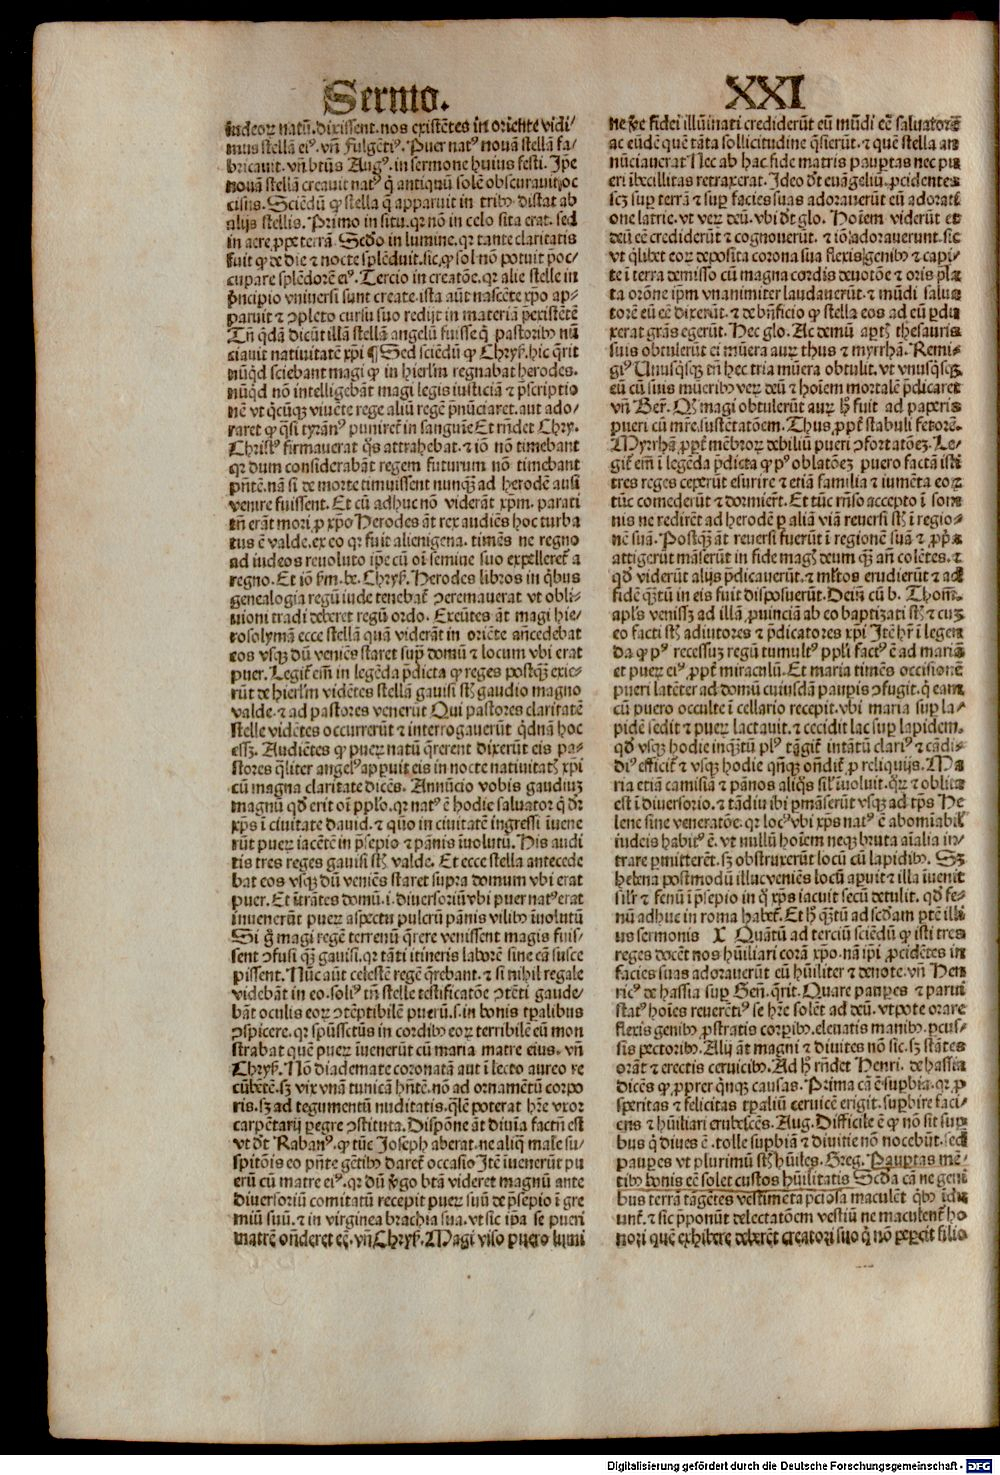 Sermo. XXI
iudeoꝝ natū. dixissent. nos existētes in oriēte vidi/
mus stellā eiꝰ. vn̄ Fulgētiꝰ. Puer natꝰ nouā stellā fa/
bricauit. vn̄ btūs Augꝰ. in sermone huius festi. Ip̄e
nouā stellā creauit natꝰ q̇ antiquū solē obscurauit oc
cisus. Sciēdū ꝙ stella q̄ apparuit in tribꝰ distat ab
alijs stellis. Primo in situ. qꝛ nō in celo sita erat. sed
in aere ꝓpe terrā. Scd̄o in lumine. qꝛ tante claritatis
fuit ꝙ de die ⁊ nocte splēduit. sic ꝙ sol nō potuit p̄oc/
cupare splēdorē eiꝰ. Tercio in creatōe. qꝛ alie stelle in
p̄ncipio vniuersi sunt create. ista aūt nascēte xp̄o ap/
paruit ⁊ ꝯpleto cursu suo redijt in materiā p̄existētē
Tn̄ q̇dā dicūt illā stellā angelū fuisse q̇ pastoribꝰ nū
ciauit natiuitatē xp̄i ¶ Sed sciēdū ꝙ Chryß. hic q̄rit
nūq̇d sciebant magi ꝙ in hierl̄m regnabat herodes.
nūq̇d nō intelligebāt magi legis iusticiā ⁊ p̄scriptio
nē vt q̇cūqꝫ viuēte rege aliū regē p̄nūciaret. aut ado/
raret ꝙ q̄si tyrānꝰ puniret̄ in sanguīe Et rn̄det Chry.
Christꝰ firmauerat q̇s attrahebat. ⁊ iō nō timebant
qꝛ dum considerabāt regem futurum nō timebant
p̄ntē. nā si de morte timuissent nunqꝫ ad herodē ausi
venire fuissent. Et cū adhuc nō viderāt xp̄m. parati
tn̄ erāt mori ꝓ xp̄o Herodes āt rex audiēs hoc turba
tus ē valde. ex eo qꝛ fuit alienigena. timēs ne regno
ad iudeos reuoluto ip̄e cū oī semine suo expelleret̄ a
regno. Et iō ẜm. be. Chryß. Herodes libros in q̇bus
genealogia regū iude tenebat̄ ꝯcremauerat vt obli/
uioni tradi deberet regū ordo. Exeūtes āt magi hie/
rosolymā ecce stellā quā viderāt in oriēte an̄cedebat
eos vsqꝫ dū veniēs staret sup̄ domū ⁊ locum vbi erat
puer. Legit̄ em̄ in legēda p̄dicta ꝙ reges postqꝫ exie/
rūt de hierl̄m vidētes stellā gauisi st̄ gaudio magno
valde. ⁊ ad pastores venerūt Qui pastores claritatē
stelle vidētes occurrerūt ⁊ interrogauerūt q̇dnā hoc
essꝫ. Audiētes ꝙ pueꝝ natū q̄rerent dixerūt eis pa/
stores q̄liter angelꝰ apparuit eis in nocte natiuitatꝭ xp̄i
cū magna claritate dicēs. Annūcio vobis gaudiuꝫ
magnū qd̄ erit oī pp̄lo. qꝛ natꝰ ē hodie saluator q̇ dr̄
xp̄s ī ciuitate dauid. ⁊ quō in ciuitatē ingressi īuene
rūt pueꝝ iacētē in p̄sepio ⁊ pānis īuolutū. His audi
tis tres reges gauisi st̄ valde. Et ecce stella antecede
bat eos vsqꝫ dū veniēs staret supra domum vbi erat
puer. Et ītrātes domū. i. diuersoriū vbi puer natꝰ erat
inuenerūt pueꝝ aspectu pulcrū pānis vilibꝰ īuolutū
Si g̊ magi regē terrenū q̄rere venissent magis fuis/
sent ꝯfusi qꝫ gauisi. qꝛ tāti itineris laborē sine cā susce
pissent. Nūc aūt celestē regē q̄rebant. ⁊ si nihil regale
videbāt in eo. soliꝰ tn̄ stelle testificatōe ꝯtēti gaude/
bāt. oculis eoꝝ ꝯtēptibilē pueꝝ. s. in bonis tp̄alibus
ꝯspicere. qꝛ sp̄ussctūs in cordibꝰ eoꝝ terribilē eū mon
strabat quē pueꝝ īuenerūt cū maria matre eius. vn̄
Chryß. Nō diademate coronatā aut ī lecto aureo re
cūbētē. sꝫ vix vnā tunicā hn̄tē. nō ad ornamētū corpo
ris. sꝫ ad tegumentū nuditatis. q̄lē poterat hr̄e vxor
carpētarij ꝑegre ꝯstituta. Dispōne āt diuīa factū est
vt dt̄ Rabanꝰ. ꝙ tūc Joseph aberat. ne aliq̄ male su/
spitōis eo p̄nte gētibꝰ daret̄ occasio Itē īuenerūt pu
erū cū matre eiꝰ. qꝛ dū ꝟgo btā videret magnū ante
diuersoriū comitatū recepit pueꝝ suū de p̄sepio ī gre
miū suū. ⁊ in virginea brachia sua. vt sic ip̄a se pueri
matrē on̄deret eē. vn̄ Chryß. Magi viso puero lumi
ne ꝟe fidei illūinati crediderūt eū mūdi eē saluatorē
ac eūdē quē tāta sollicitudine q̄sierūt. ⁊ quē stella an
nūciauerat Nec ab hac fide matris paup̄tas nec pu
eri ībecillitas retraxerat. Ideo dt̄ euāgeliū. ꝓcidentes
scꝫ suꝑ terrā ⁊ suꝑ facies suas adorauerūt eū adorati
one latrie. vt veꝝ deū. vbi dt̄ glo. Hoīem viderūt et
deū eē crediderūt ⁊ cognouerūt. ⁊ iō adorauerunt. sic
vt q̇libet eoꝝ deposita corona sua flexis genibꝰ ⁊ capi/
te ī terra demisso cū magna cordis deuotōe ⁊ oris p̄la
ta orōne ip̄m vnanimiter laudauerūt. ⁊ mūdi salua
torē eū eē dixerūt. ⁊ de bn̄ficio ꝙ stella eos ad eū ꝑdu
xerat gr̄as egerūt. Hec glo. Ac demū aptꝭ thesauris
suis obtulerūt ei mūera auꝝ thus ⁊ myrrhā. Remi/
giꝰ Unusq̇sqꝫ tn̄ hec tria mūera obtulit. vt vnusq̇sqꝫ
eū cū suis mūeribꝰ veꝝ deū ⁊ hoīem mortalē p̄dicaret
vn̄ Ber. Qꝛ magi obtulerūt auꝝ hͦ fuit ad paperis
pueri cū mr̄e. sustētatōem. Thus. ꝓpt̄ stabuli fetorē.
Myrrhā ꝓpt̄ mēbroꝝ debiliū pueri ꝯfortatōeꝫ. Le/
git̄ em̄ ī legēda p̄dicta ꝙ pꝰ oblatōeꝫ puero factā isti
tres reges ceperūt esurire ⁊ etiā familia ⁊ iumēta eoꝝ
tūc comederūt ⁊ dormiert̄. Et tūc rn̄so accepto ī som
nis ne redirēt ad herodē ꝑ aliā viā reuersi st̄ ī regio/
nē suā. Postqꝫ āt reuersi fuerūt ī regionē suā ⁊ ꝓp̄a
attigerūt māserūt in fide magꝭ deum qꝫ an̄ colētes. ⁊
qd̄ viderūt alijs p̄dicauerūt. ⁊ ml̄tos erudierūt ⁊ ad
fidē qꝫtū in eis fuit disposuerūt. Deīn cū b. Thom̄.
apl̄s venissꝫ ad illā ꝓuinciā ab eo baptizati st̄ ⁊ cuꝫ
eo facti st̄ adiutores ⁊ p̄dicatores xp̄i Itē hr̄ ī legen
da ꝙ pꝰ recessuꝫ regū tumultꝰ pp̄li factꝰ ē ad mariā
et pueꝝ eiꝰ ꝓpt̄ miraculū. Et maria timēs occisionē
pueri latēter ad domū cuiusdā paup̄is ꝯfugit. q̇ eam
cū puero occulte ī cellario recepit. vbi maria suꝑ la/
pidē sedit ⁊ pueꝝ lactauit. ⁊ cecidit lac suꝑ lapidem.
qd̄ vsqꝫ hodie inqꝫtū plꝰ tāgit̄ intātū clariꝰ ⁊ cādi/
diꝰ efficit̄ ⁊ vsqꝫ hodie qn̄qꝫ on̄dit̄ ꝓ reliquijs. Ma
ria etiā camisiā ⁊ pānos aliq̇s sil̄ īuoluit. q̄ꝝ ⁊ oblita
est ī diuersorio. ⁊ tādiu ibi ꝑmāserūt vsqꝫ ad tp̄s He
lene sine veneratōe. qꝛ locꝰ vbi xp̄s natꝰ ē abomīabil̄
iudeis habitꝰ ē. vt nullū hoīem neqꝫ bruta aīalia in/
trare ꝑmitterēt. sꝫ obstruxerūt locū cū lapidibꝰ. Sꝫ
helena postmodū illuc veniēs locū apuit ⁊ illa īuenit
sil̄r ⁊ fenū ī p̄sepio in q̊ xp̄s iacuit secū detulit. qd̄ fe/
nū adhuc in roma habet̄. Et hͦ qꝫtū ad scd̄am ptē illi
us sermonis X Quātū ad terciū sciēdū ꝙ isti tres
reges docēt nos hūiliari corā xp̄o. nā ip̄i ꝓcidētes in
facies suas adorauerūt eū hūiliter ⁊ deuote. vn̄ Hen
ricꝰ de hassia suꝑ Gen̄. q̄rit. Quare paup̄es ⁊ parui
statꝰ hoīes reuerētiꝰ se hr̄e solēt ad deū. vtpote orare
flexis genibꝰ ꝓstratis corꝑibꝰ. eleuatis manibꝰ. ꝑcus/
sis pectoribꝰ. Alij āt magni ⁊ diuites nō sic. sꝫ stātes
orāt ⁊ erectis ceruicibꝰ. Ad hͦ rn̄det Henri. de hassia
dicēs ꝙ ꝓprer q̇nqꝫ causas. Prima cā ē suꝑbia. qꝛ ꝓ
speritas ⁊ felicitas tp̄aliū ceruicē erigit. suꝑbire faci/
ens ⁊ hūiliari erubescēs. Aug. Difficile ē ꝙ nō sit suꝑ
bus q̇ diues ē. tolle suꝑbiā ⁊ diuitie nō nocebūt. sed
paup̄es vt plurimū st̄ hūiles. Greg. Paup̄tas mē/
tibꝰ bonis eē solet custos hūilitatis Scd̄a cā ne geni
bus terrā tāgētes vestimēta p̄ciosa maculēt qͥbꝰ īdu
unt̄. ⁊ sic p̄ponūt delectatōem vestiū ne maculent̄ ho
nori quē exhibere deberēt creatori suo q̇ nō peꝑcit filio
Digitalisierung gefördert durch die Deutsche Forschungsgemeinschaft - DFG